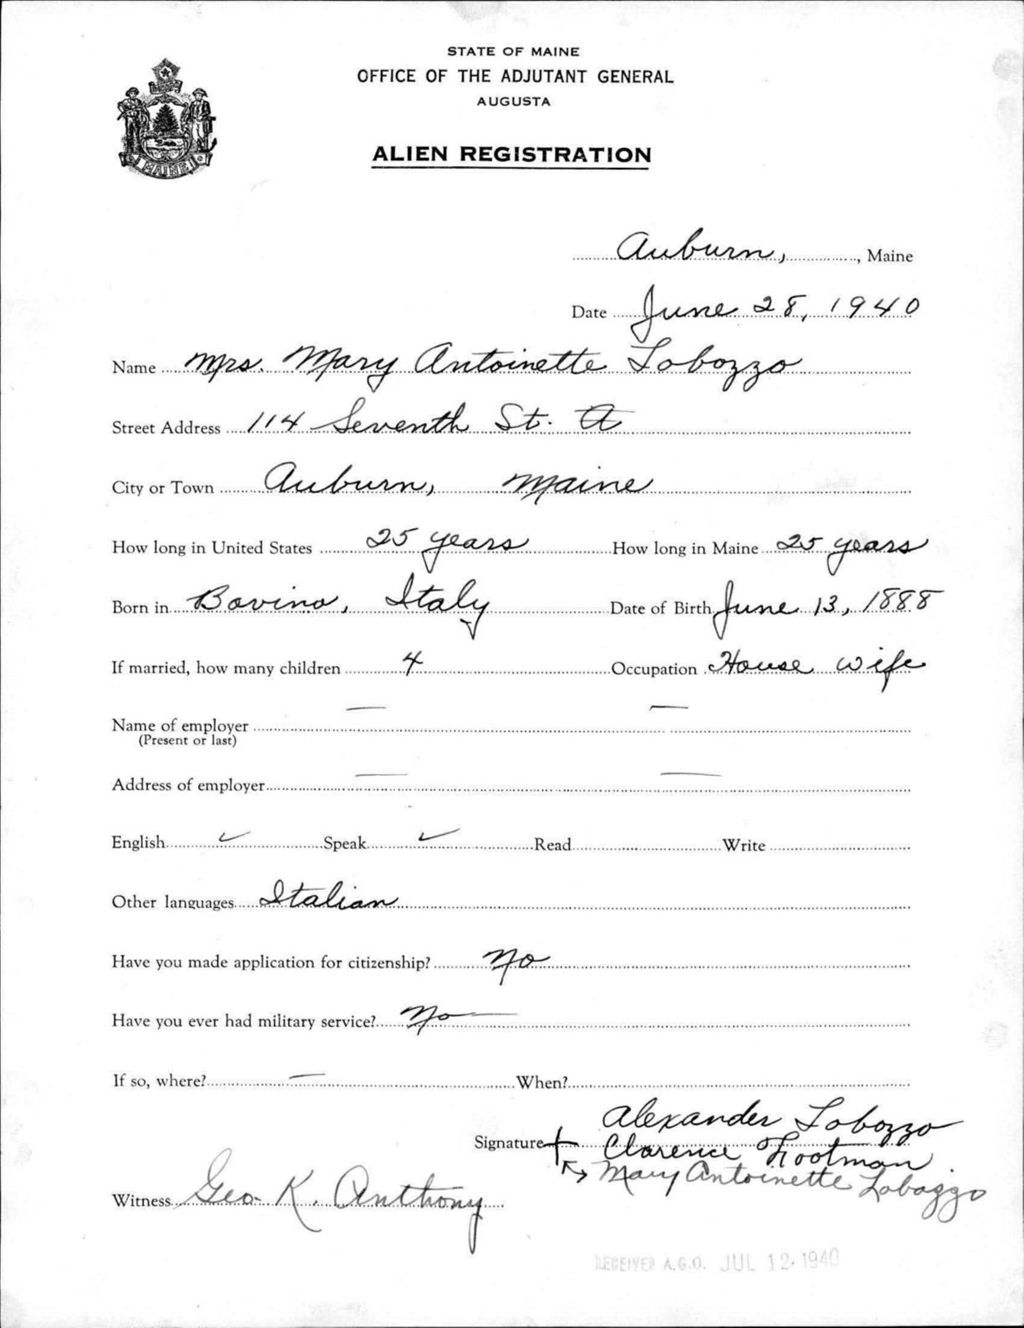 STATE OF MAINE
OFFICE OF THE ADJUTANT GENERAL
AUGUSTA
ALIEN REGISTRATION
MAINE
Auburn, , Maine
Date June 28, 1940
Name Mrs. Mary Antoinette Lobozzo
Street Address 114 Seventh St. A
City or Town Auburn, Maine
How long in United States 25 years How long in Maine 25 years
Born in Bovino, Italy Date of Birth June 13, 1888
If married, how many children 4 Occupation House wife
Name of employer — —
(Present or last)
Address of employer — —
English ✓ Speak ✓ Read Write
Other languages Italian
Have you made application for citizenship? No
Have you ever had military service? No
If so, where? — When?
Alexander Lobozzo
Signature + Clarence
Mary Antoinette Lobozzo
Witness Geo. K. Anthony
RECEIVED A.G.O. JUL 12 1940